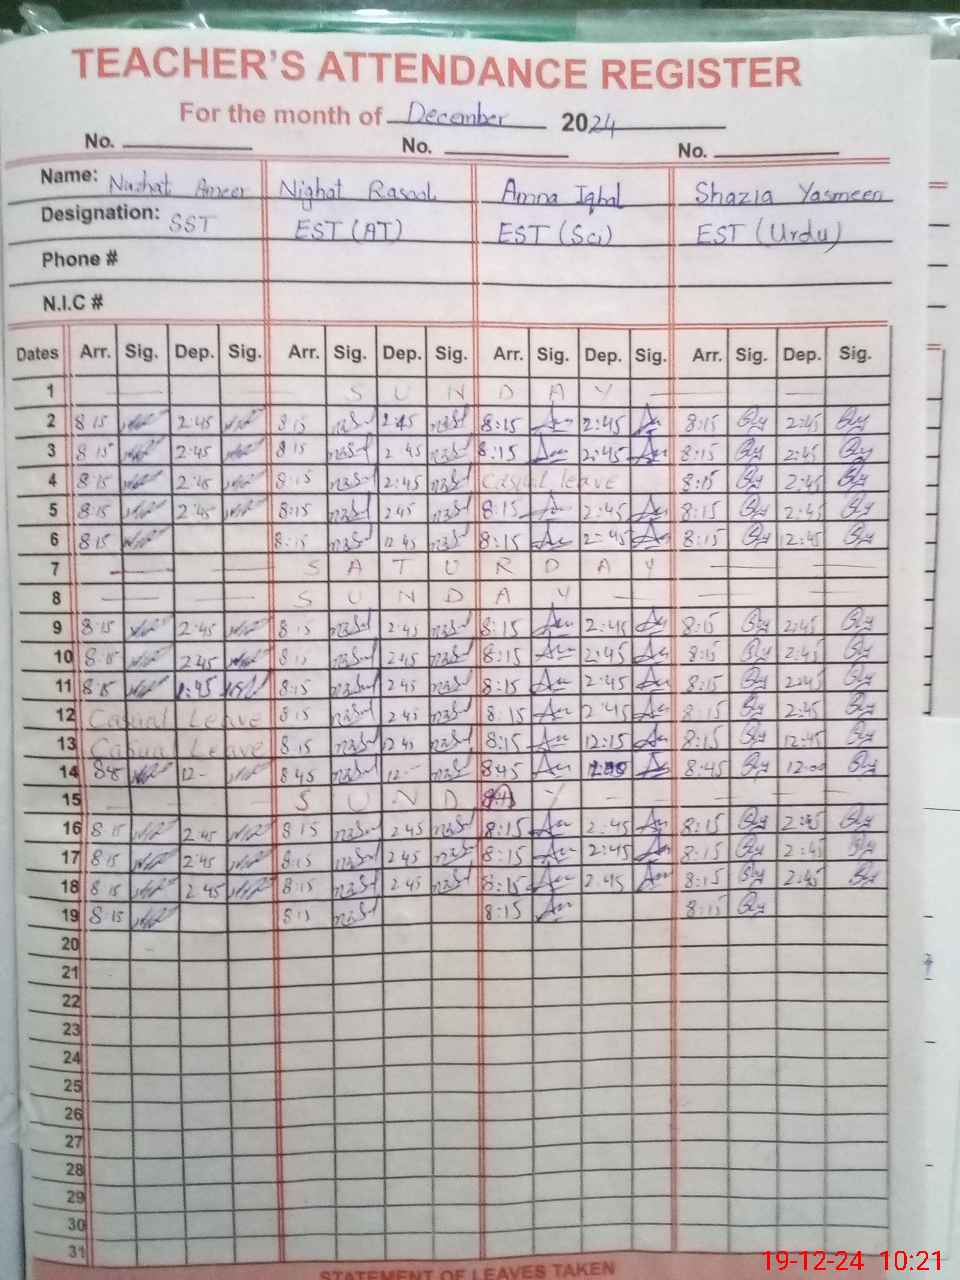 TEACHER'S ATTENDANCE REGISTER
For the month of December 2024
No. No. No.
Name: Nuzhat Ameer Nighat Rasool Amna Iqbal Shazia Yasmeen
Designation: SST EST (AT) EST (Sci) EST (Urdu)
Phone #
N.I.C #
Dates Arr. Sig. Dep. Sig. Arr. Sig. Dep. Sig. Arr. Sig. Dep. Sig. Arr. Sig. Dep. Sig.
1 SUNDAY
2 8 15 2:45 8 15 2:45 8:15 2:45 8:15 2:45
3 8 15 2:45 8 15 2 45 8:15 2:45 8:15 2:45
4 8:15 2:45 8:15 2:45 Casual leave 8:15 2:45
5 8:15 2:45 8:15 2:45 8:15 2:45 8:15 2:45
6 8:15 8:15 12 45 8:15 2:45 8:15 12:45
7 SATURDAY
8 SUNDAY
9 8:15 2:45 8 15 2:45 8:15 2:45 8:15 2:45
10 8:15 2 45 8:15 2 45 8:15 2:45 8:15 2:45
11 8:15 1:45 8:15 2 45 8:15 2:45 8:15 2:45
12 Casual Leave 8:15 2 45 8:15 2:45 8:15 2:45
13 Casual Leave 8 15 12 45 8:15 12:15 8:15 12:45
14 12- 8 45 12- 8:45 8:45 12:00
15 SUND Y
16 8:15 2:45 8 15 2 45 8:15 2:45 8:15 2:45
17 8:15 2:45 8:15 2 45 8:15 2:45 8:15 2:45
18 8 15 2 45 8:15 2 45 8:15 2:45 8:15 2:45
19 8:15 8:15 8:15 8:15
20
21
22
23
24
25
26
27
28
29
30
31
STATEMENT OF LEAVES TAKEN
19-12-24 10:21